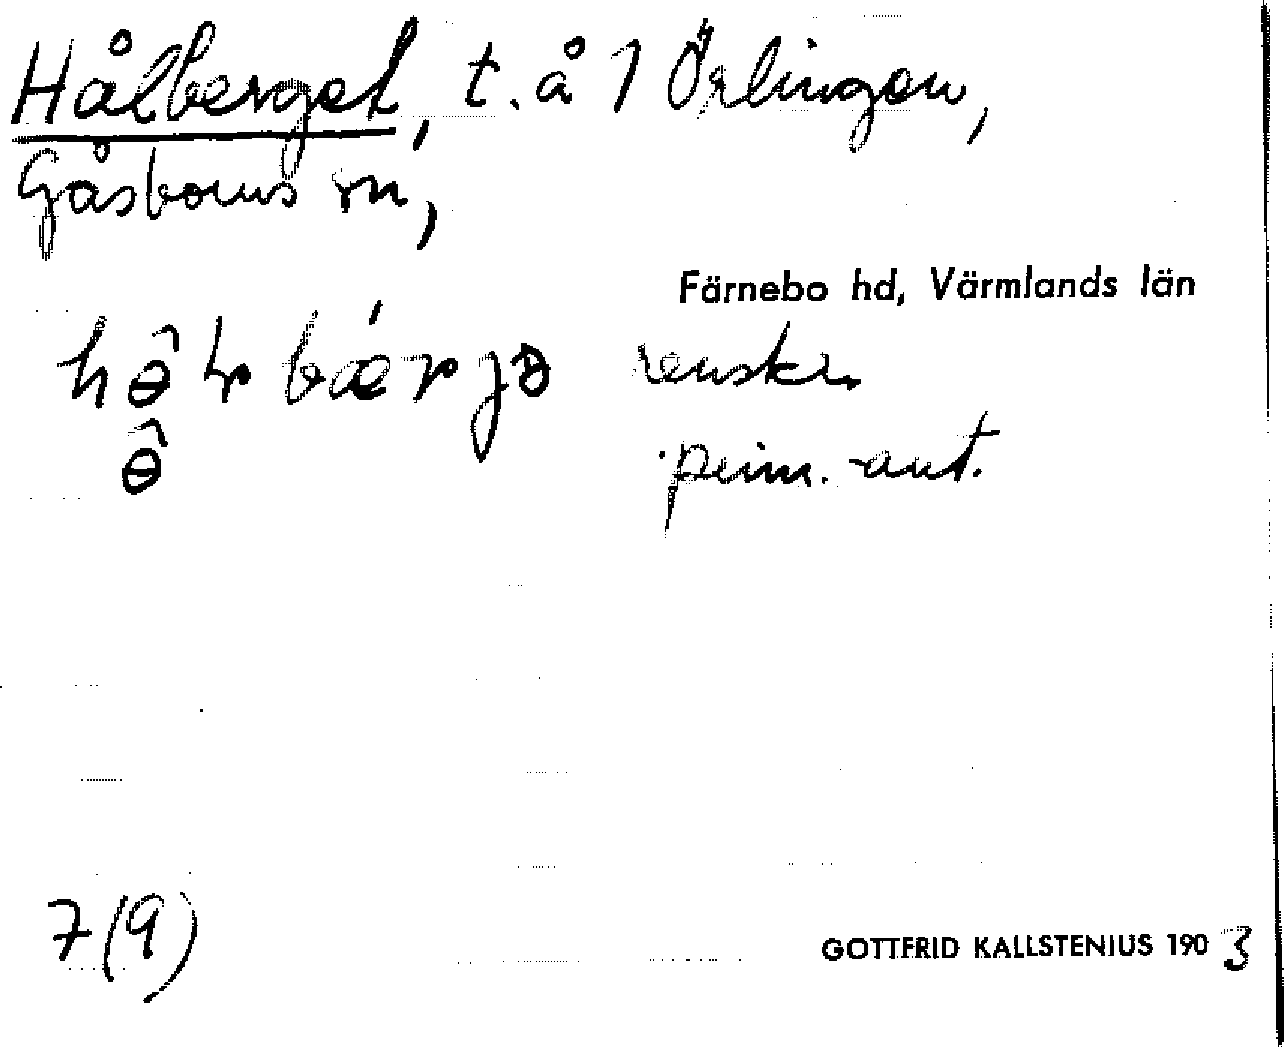 Hålberget, t. å 1 Örlingen,
Gåsborns sn,
Färnebo hd, Värmlands län
renskr.
prim.-ant.
7(9)
GOTTFRID KALLSTENIUS 1903